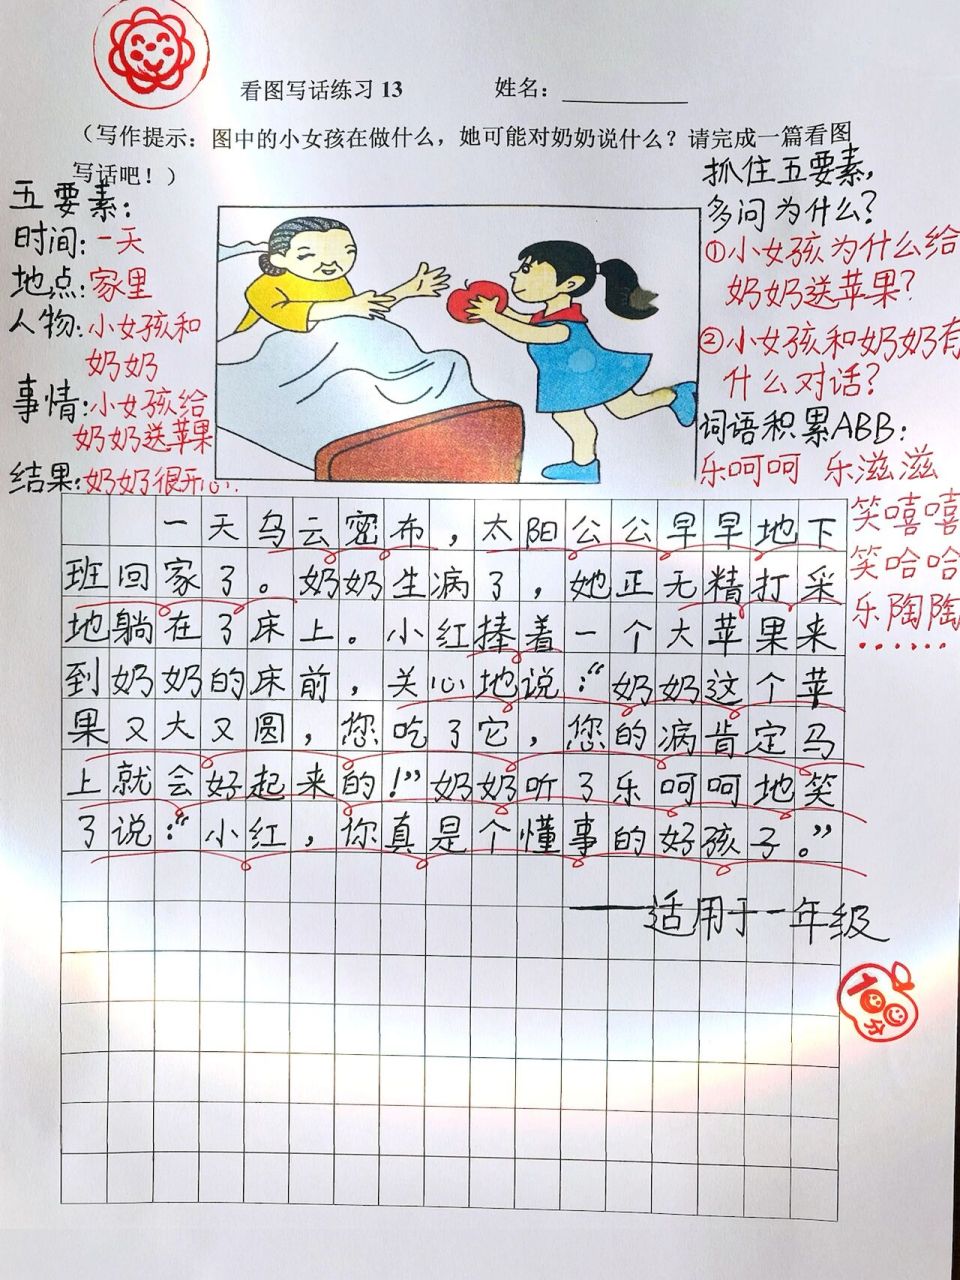 看图写话练习13 姓名：
（写作提示：图中的小女孩在做什么，她可能对奶奶说什么？请完成一篇看图
写话吧！）
五要素：
时间：一天
地点：家里
人物：小女孩和
奶奶
事情：小女孩给
奶奶送苹果
结果：奶奶很开心.
抓住五要素，
多问为什么？
①小女孩为什么给
奶奶送苹果？
②小女孩和奶奶有
什么对话？
词语积累ABB：
乐呵呵 乐滋滋
笑嘻嘻
笑哈哈
乐陶陶
......
一天乌云密布，太阳公公早早地下
班回家了。奶奶生病了，她正无精打采
地躺在了床上。小红捧着一个大苹果来
到奶奶的床前，关心地说：“奶奶这个苹
果又大又圆，您吃了它，您的病肯定马
上就会好起来的！”奶奶听了乐呵呵地笑
了说：“小红，你真是个懂事的好孩子。”
——适用于一年级
100分